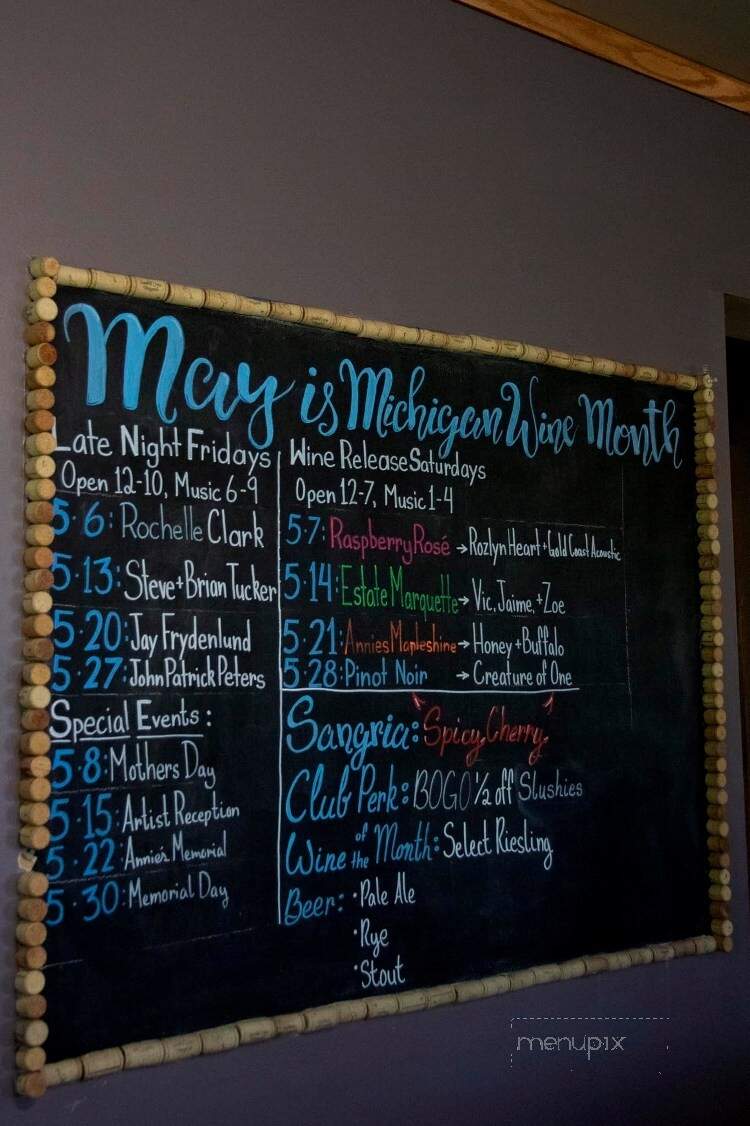 May is Michigan Wine Month
Late Night Fridays
Open 12-10, Music 6-9
5·6: Rochelle Clark
5·13: Steve + Brian Tucker
5·20: Jay Frydenlund
5·27: John Patrick Peters
Special Events:
5·8: Mothers Day
5·15: Artist Reception
5·22: Annie's Memorial
5·30: Memorial Day
Wine Release Saturdays
Open 12-7, Music 1-4
5·7: Raspberry Rosé → Rozlyn Heart + Gold Coast Acoustic
5·14: Estate Marquette → Vic, Jaime, + Zoe
5·21: Annies Mapleshine → Honey + Buffalo
5·28: Pinot Noir → Creature of One
Sangria: Spicy Cherry
Club Perk: BOGO ½ off Slushies
Wine of the Month: Select Riesling
Beer: · Pale Ale
· Rye
· Stout
menupix